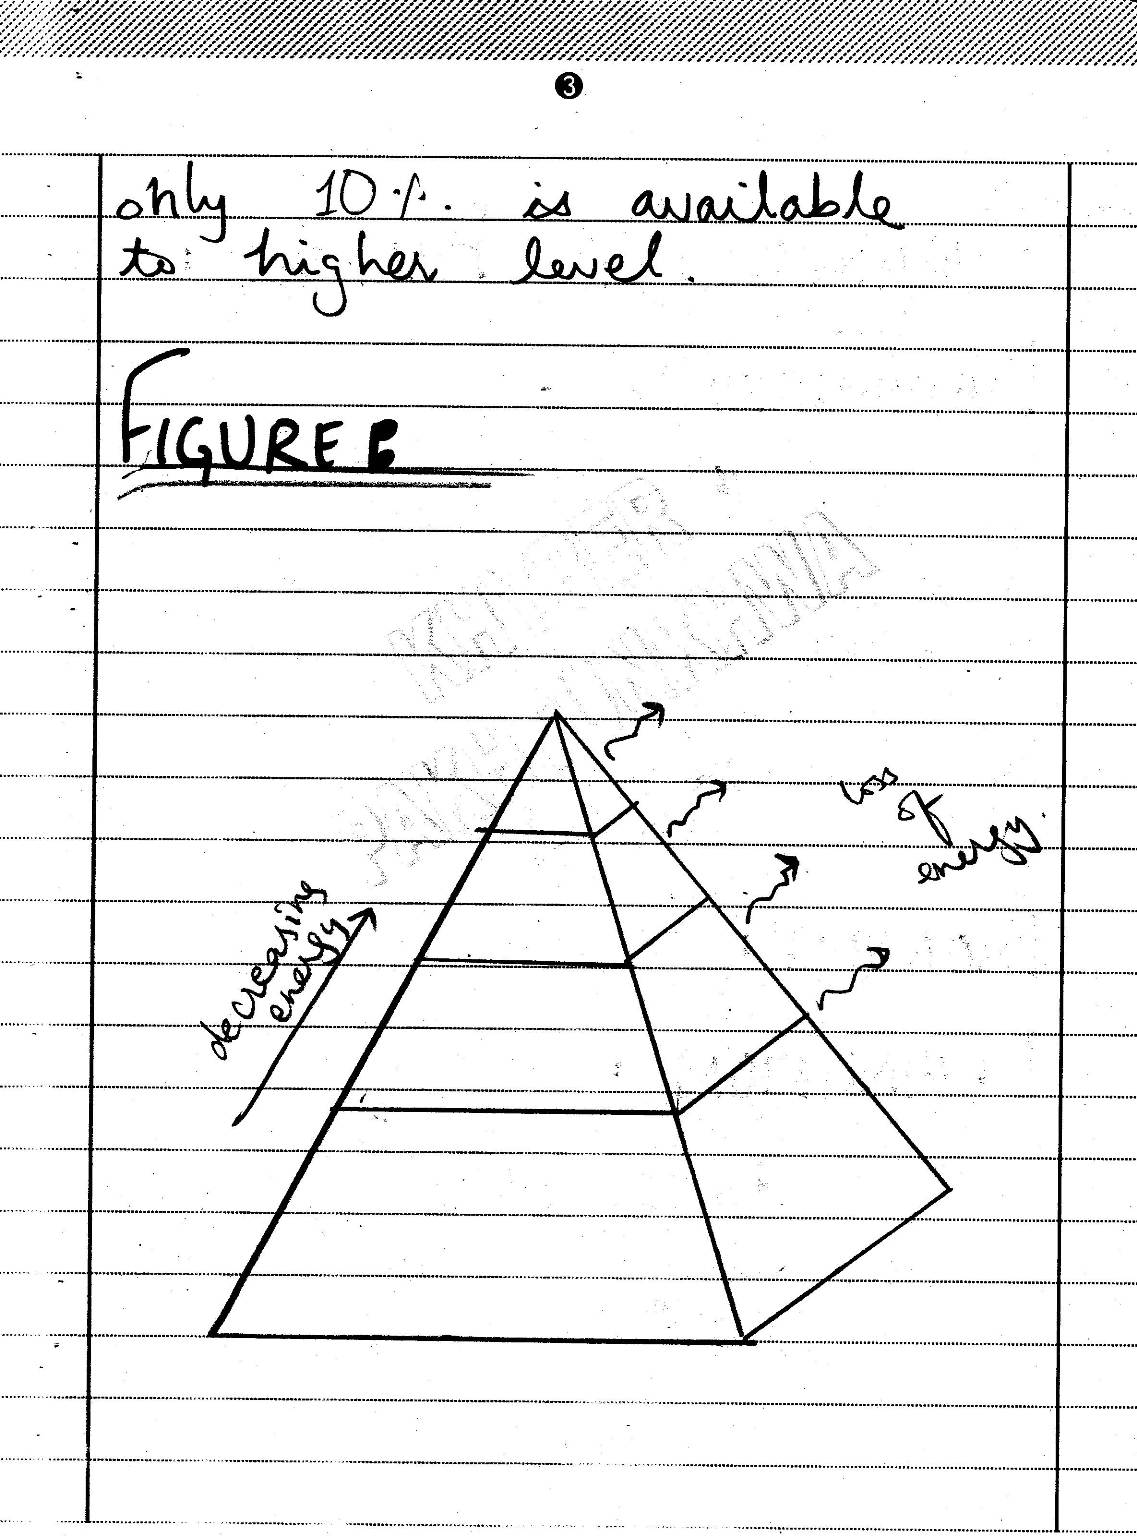 3
only 10%. is available
to higher level.
FIGURE B
loss
of
energy.
decreasing
energy